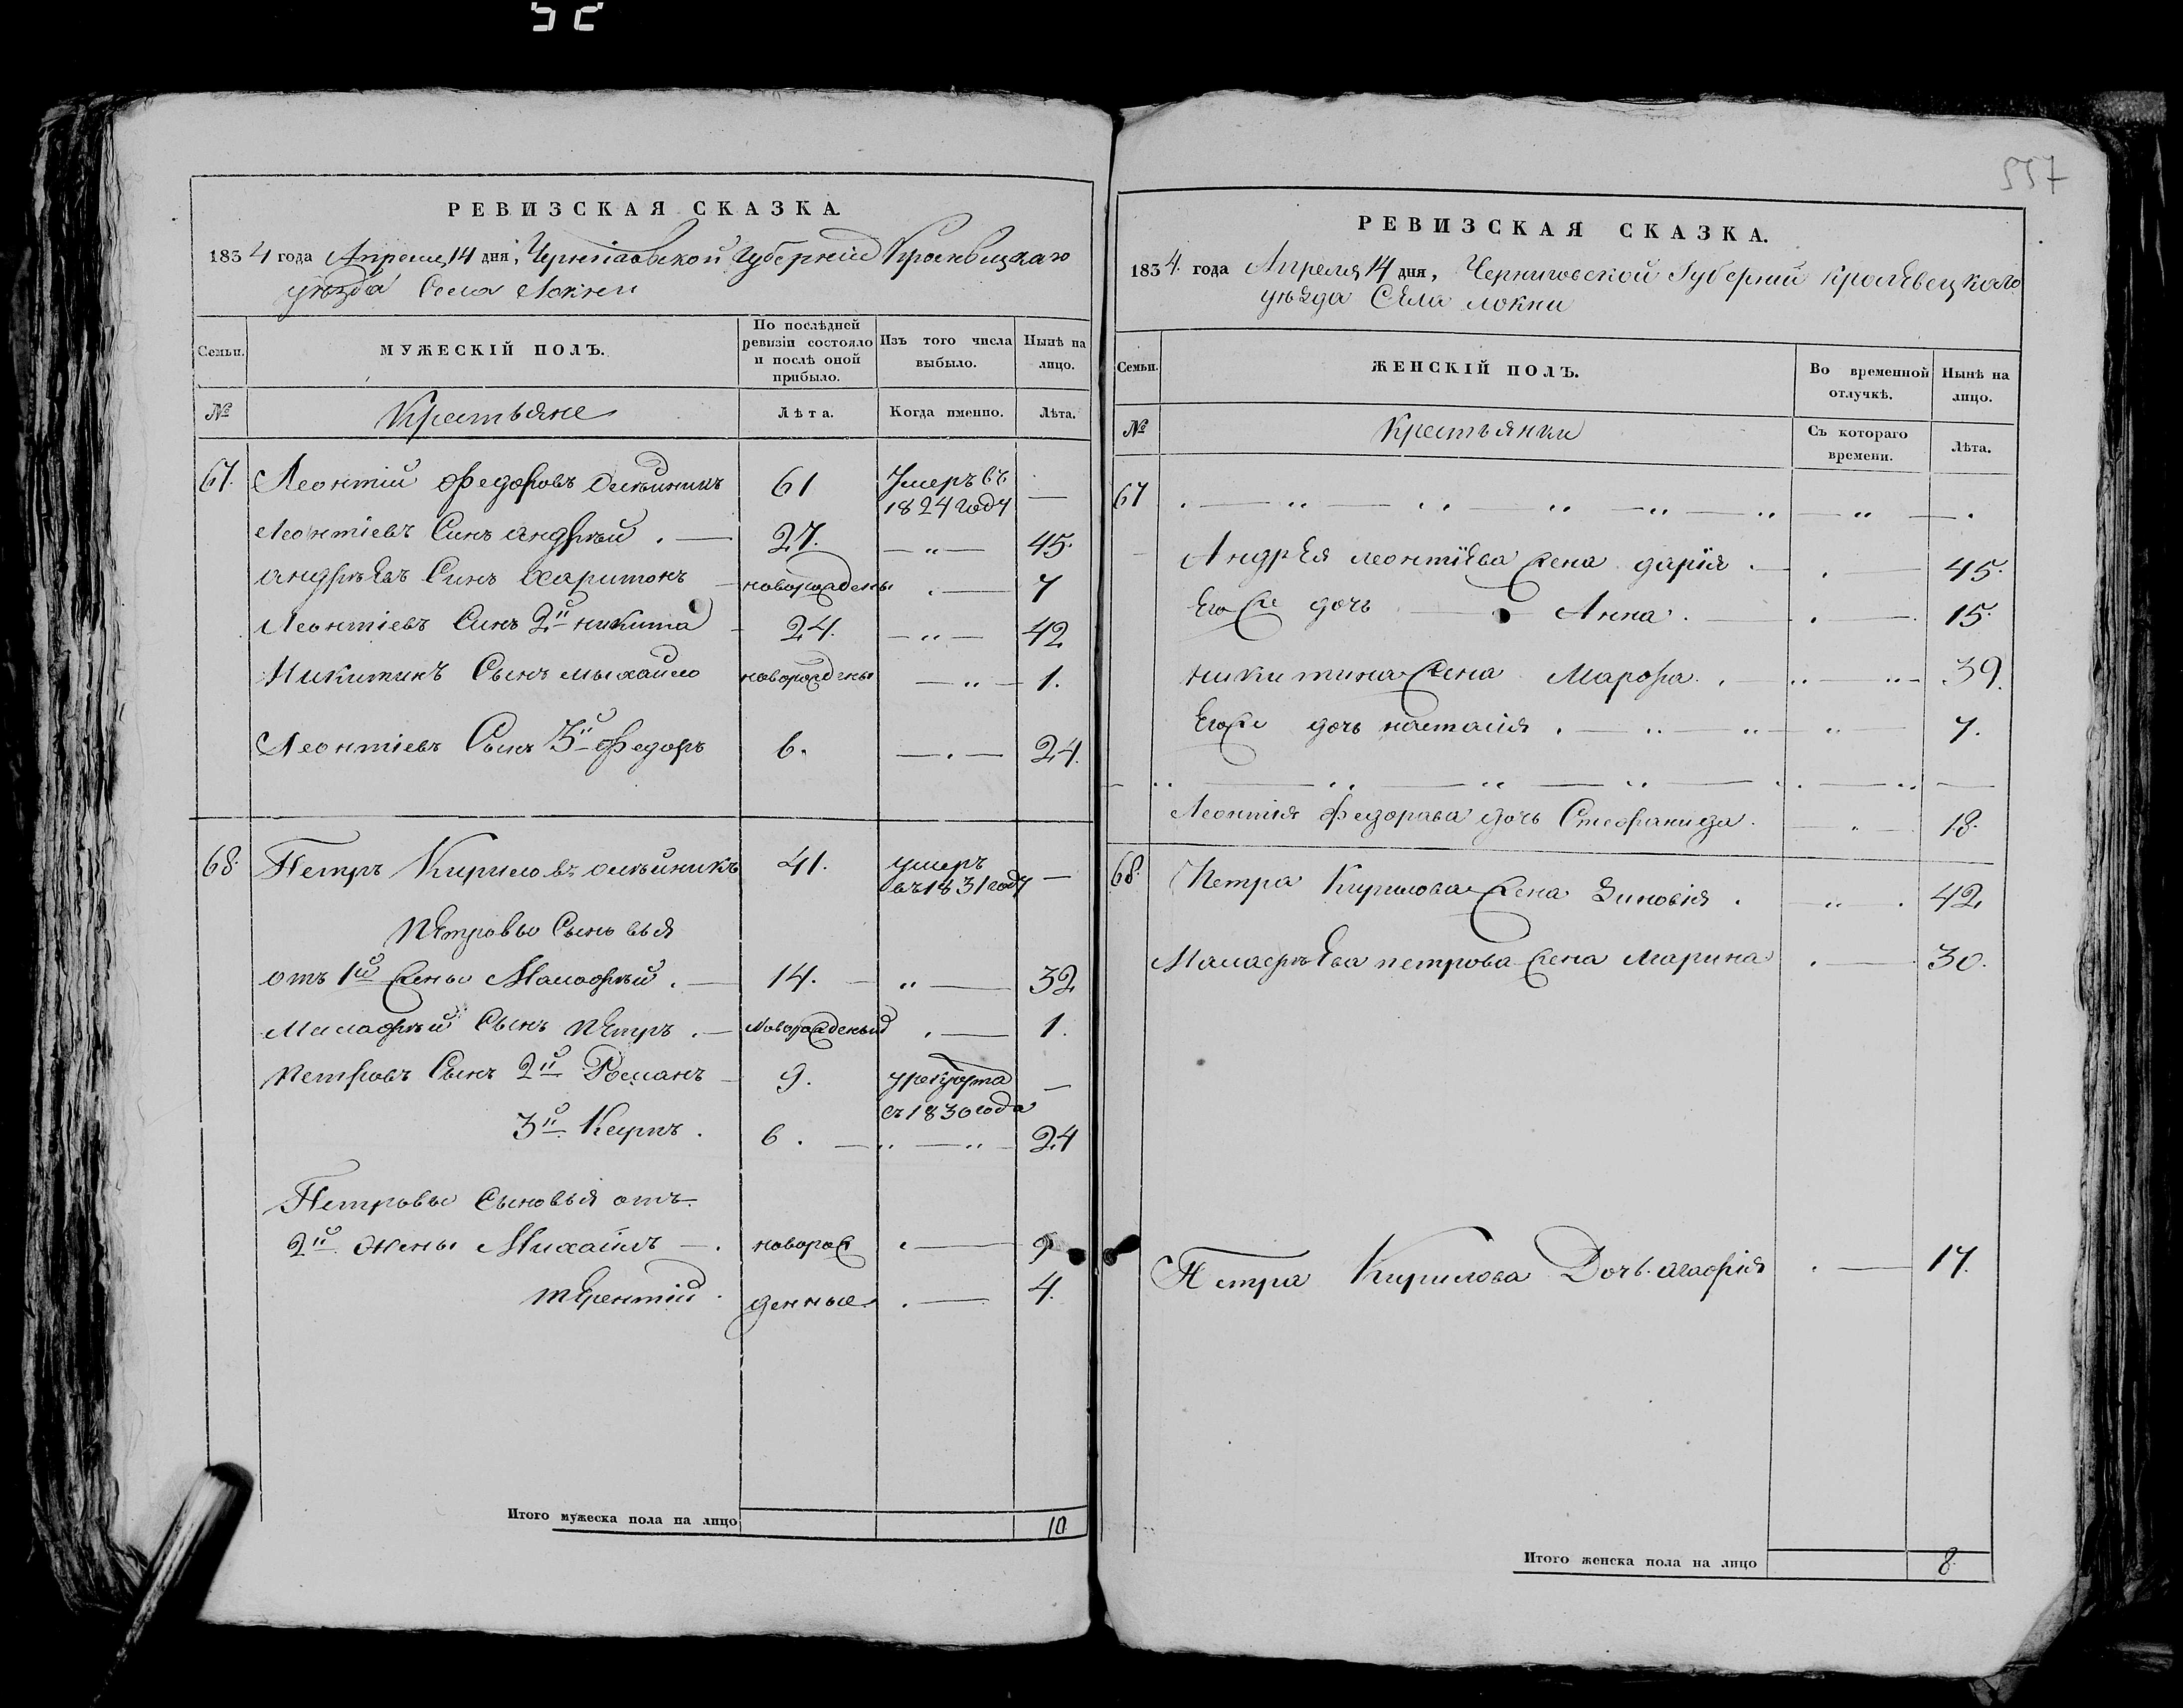 557
РЕВИЗСКАЯ СКАЗКА.
1834 года Апреля 14 дня, Черниговской Губерніи Кролевицкаго
уезда Села Локни
Семьи.
МУЖЕСКІЙ ПОЛЪ.
По послѣдней ревизіи состояло и послѣ оной прибыло.
Изъ того числа выбыло.
Нынѣ на лицо.
№ Крестьяне Лѣта. Когда именно. Лѣта.
67. Леонтій Федоровъ Олѣйникъ 61 Умеръ въ —
1824 году
Леонтіевъ Синъ андрѣй . — 27. — „ — 45.
андрѣевъ Синъ Харитонъ — новорожденны . — 7
Леонтіевъ Синъ 2й никита — 24. — „ — 42
Никитинъ Сынъ мыхайло новорожденны — „ — 1.
Леонтіевъ Сынъ 3й Федоръ 6. — . — 24.
68. Петръ Кириловъ олѣйникъ 41. умеръ —
въ 1831 году
Петровы Сыновья
отъ 1й жены Малафѣй . — 14. — „ — 32
Малафѣй Сынъ Петръ . — Новорожденый . — 1.
Петровъ Сынъ 2й Романъ — 9. у рекрута —
съ 1830 года
3й Карпъ . 6 . — „ — „ — 24
Петровы Сыновья отъ
2й жены Михаилъ — . новорож . — 9
терентій . денные . — 4.
Итого мужеска пола на лицо 10
РЕВИЗСКАЯ СКАЗКА.
1834. года Апреля 14 дня, Черниговской Губерніи кролевецкого
уѣзда Села локни
Семьи.
ЖЕНСКІЙ ПОЛЪ.
Во временной отлучкѣ.
Нынѣ на лицо.
№ Крестьянки Съ котораго времени. Лѣта.
67 . — „ — „ — „ — „ — „ — „ — .
Андрея леонтіева жена дарія . — . — 45.
Его же дочь — Анна . — . — 15.
никитина жена Марфа . — „ — „ — 39.
Его же дочь настасія . — „ — „ — „ — 7.
— „ — „ — „ — „ — „ — „ —
Леонтія Федорова дочь Стефанида . — „ — 18.
68. Петра Кирилова жена Зиновія . — „ . 42
Малафѣева петрова жена Марина . — 30.
Петра Кирилова Дочь агафія . — 17.
Итого женска пола на лицо 8.